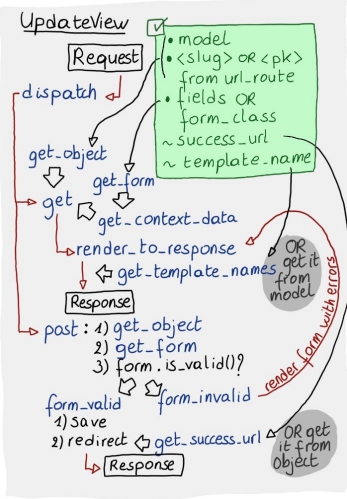 UpdateView
Request
• model
• <slug> OR <pk>
from url_route
• fields OR
form_class
~ success_url
~ template_name
dispatch
get_object
get_form
get
get_context_data
render_to_response
get_template_names
OR
get it
from
model
Response
post: 1) get_object
2) get_form
3) form.is_valid()?
render form with errors
form_valid
form_invalid
1) save
2) redirect
get_success_url
OR get
it from
object
Response